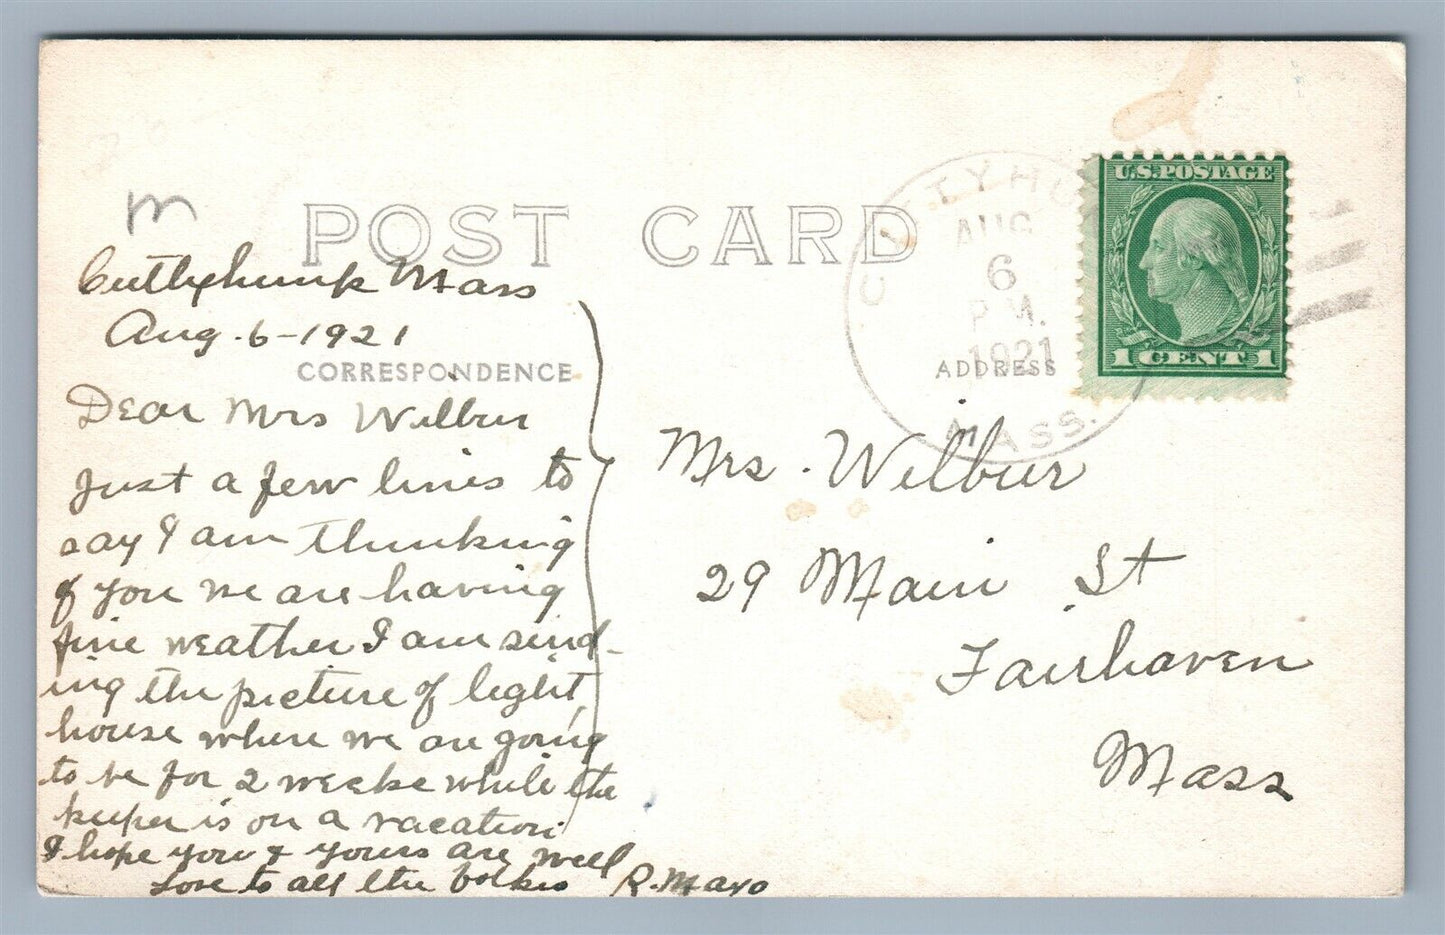 m
POST CARD
CUTTYHU
AUG
6
P.M.
1921
MASS.
U.S. POSTAGE
1 CENT 1
Cuttyhunk Mass
Aug. 6-1921
CORRESPONDENCE
ADDRESS
Dear Mrs Wilbur
Just a few lines to
say I am thinking
of you we are having
fine weather I am send-
ing the picture of light
house where we are going
to be for 2 weeks while the
keeper is on a vacation
I hope you & yours are well
Love to all the folks R. Mayo
Mrs. Wilbur
29 Main St
Fairhaven
Mass